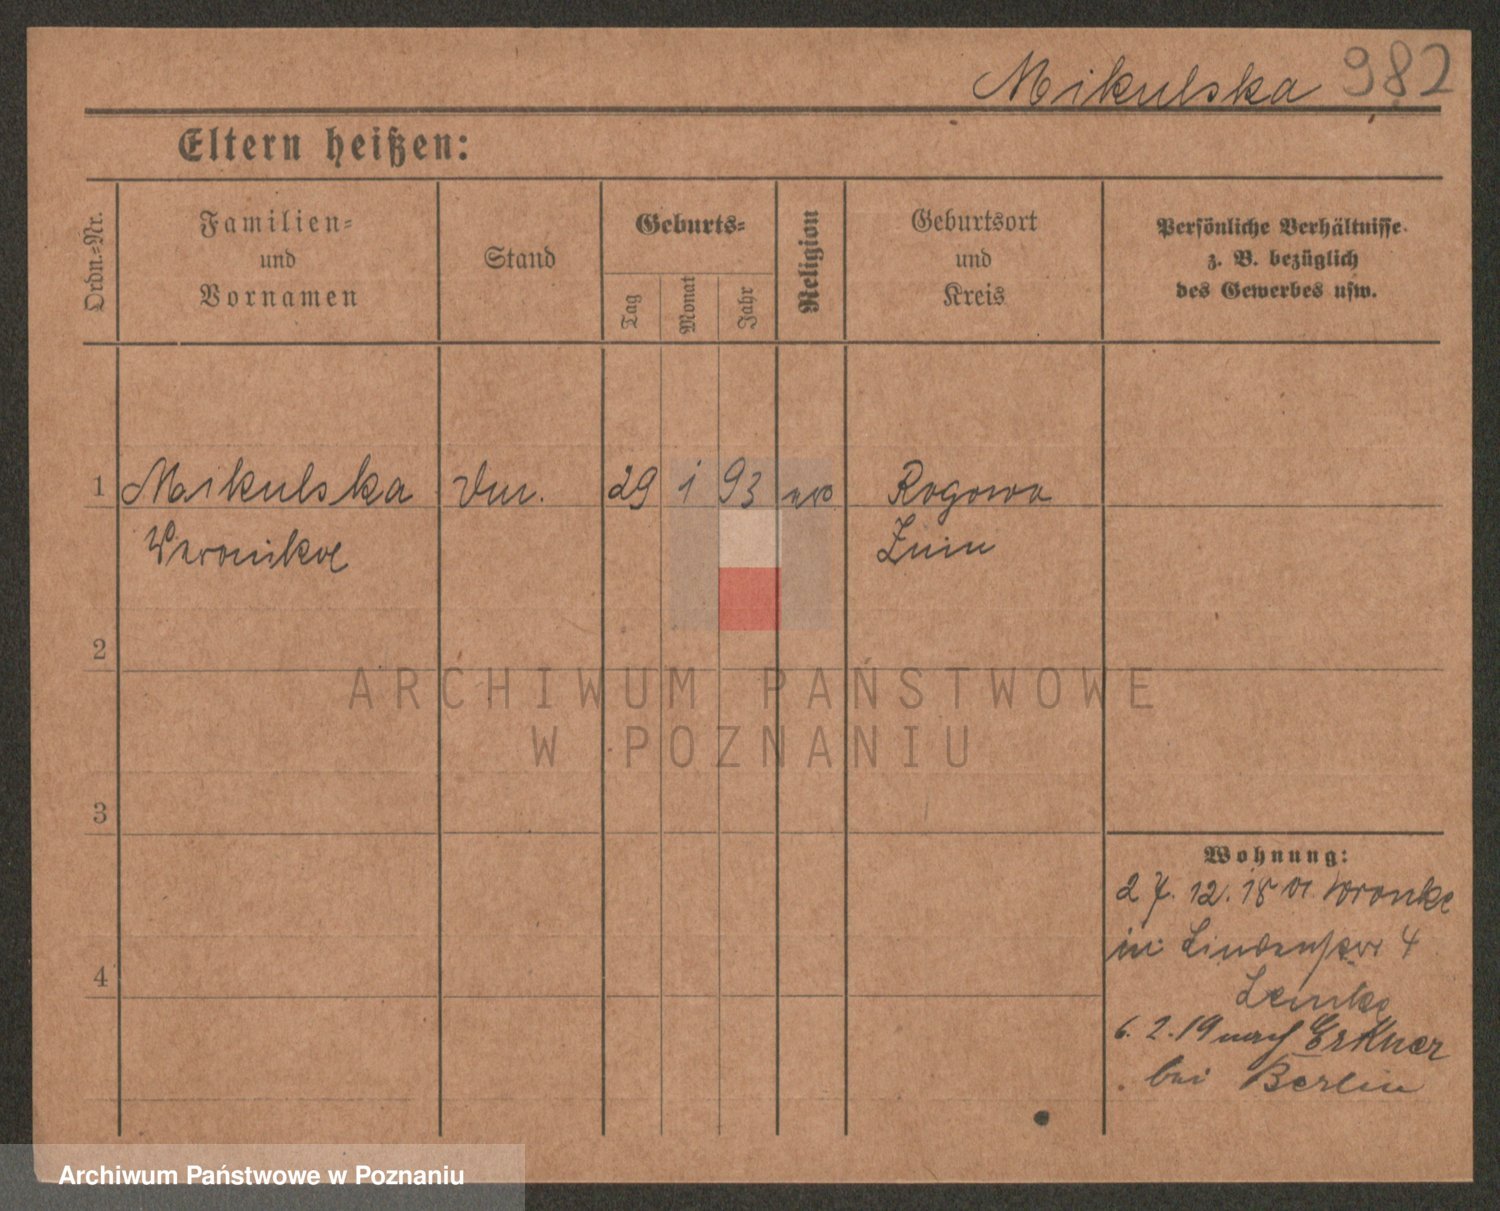 Mikulska 982
Eltern heißen:
Ordn.-Nr.
Familien-
und
Vornamen
Stand
Geburts-
Tag
Monat
Jahr
Religion
Geburtsort
und
Kreis
Persönliche Verhältnisse
z. B. bezüglich
des Gewerbes usw.
1 Mikulska 29 1 93 Rogowo
Weronika Znin
2
ARCHIWUM PAŃSTWOWE
W POZNANIU
3
Wohnung:
27. 12. 18 v. Wronke
in
4
Lemke
6. 2. 19 nach Erkner
bei Berlin
Archiwum Państwowe w Poznaniu